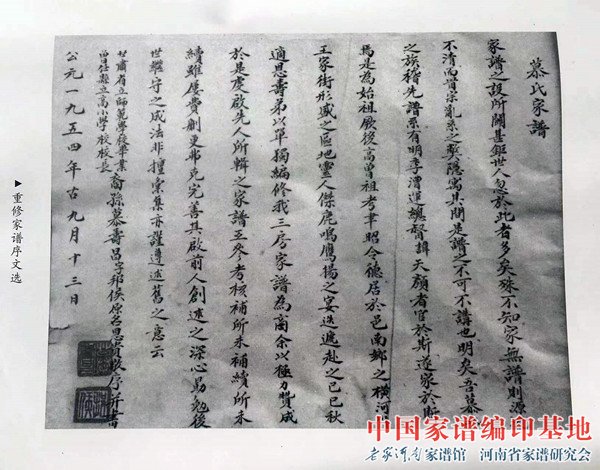 慕氏家譜
家譜之設所關甚鉅世人忽於此者多矣殊不知家無譜則源
不清而昏宗亂系之弊隱寓其間是譜之不可不講也明矣吾慕
之族稽先譜系有明季漕運總督諱天顏者官於斯遂家於斯
焉是為始祖厥後高曾祖考聿昭令德居於邑南鄉之橫河
王家街形盛之區地靈人傑鹿鳴鷹揚之宴迭遞赴之己巳秋
適思壽弟以單獨編修我三房家譜為商余以極力贊成
於是虔啟先人所輯之家譜互參考核補所未補續所未
續雖屢費創更邪克完善其啟前人創述之深心勗勉後
世繼守之成法非擅彙集亦謹遵述舊之意云
甘肅省立師範學校畢業
曾任縣立高小學校校長
裔孫慕壽昌字邦侯原名
公元一九五四年古九月十三日
▶重修家谱序文选
中国家谱编印基地
老家河南家谱馆 河南省家谱研究会